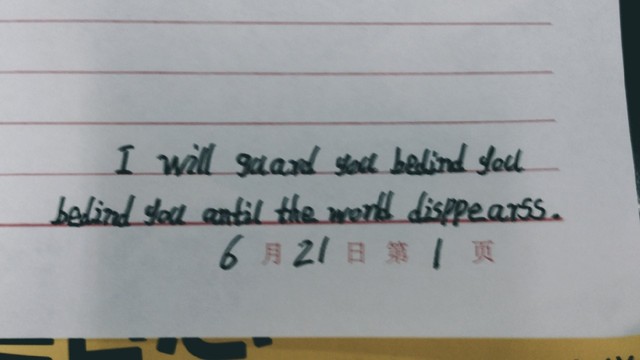 I will guard you behind you
behind you antil the world disppearss.
6月21日 第1页